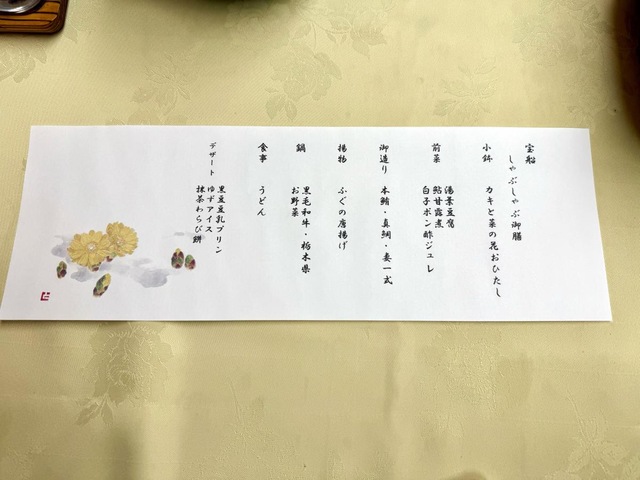 宝船
しゃぶしゃぶ御膳
小鉢
カキと菜の花おひたし
前菜
湯葉豆腐
鮎甘露煮
白子ポン酢ジュレ
御造り
本鮪・真鯛・妻一式
揚物
ふぐの唐揚げ
鍋
黒毛和牛・栃木県
お野菜
食事
うどん
デザート
黒豆豆乳プリン
ゆずアイス
抹茶わらび餅